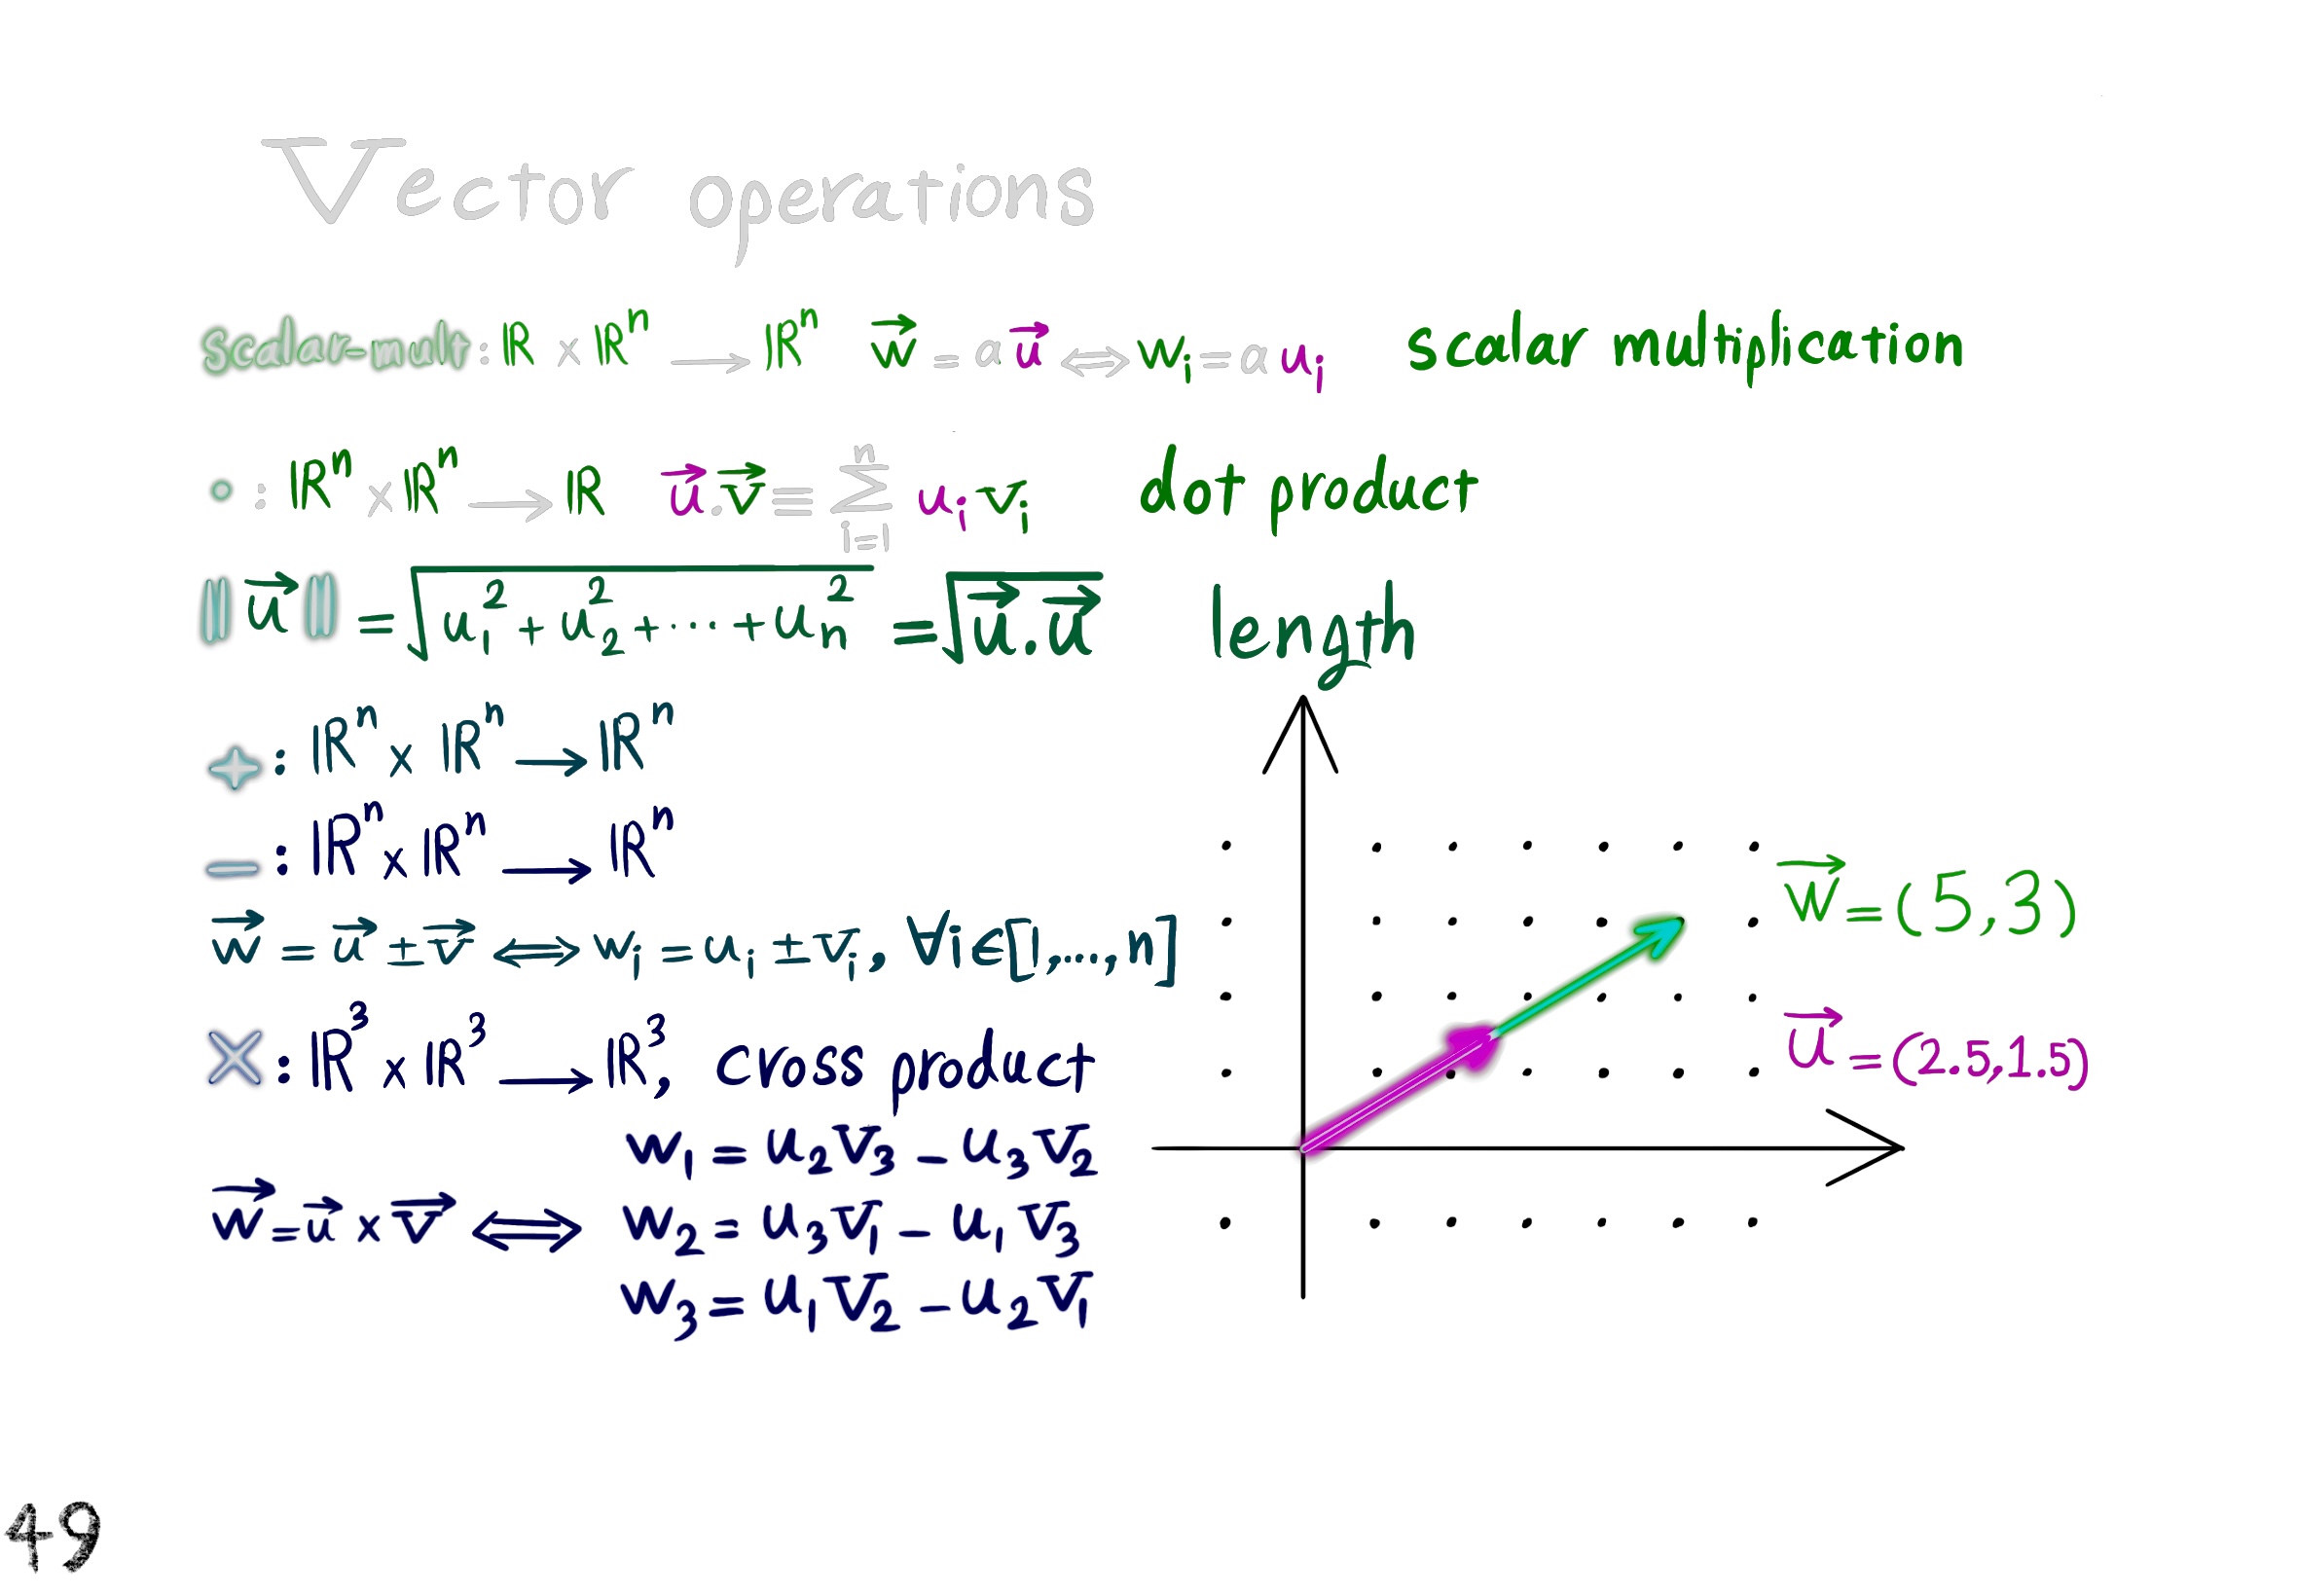 Vector operations
scalar-mult: ℝ × ℝⁿ ⟶ ℝⁿ w⃗ = a u⃗ ⟺ wᵢ = a uᵢ scalar multiplication
∘ : ℝⁿ × ℝⁿ ⟶ ℝ u⃗ . v⃗ ≡ ∑ᵢ₌₁ⁿ uᵢ vᵢ dot product
‖u⃗‖ = √(u₁² + u₂² + ⋯ + uₙ²) = √(u⃗ . u⃗) length
+ : ℝⁿ × ℝⁿ ⟶ ℝⁿ
− : ℝⁿ × ℝⁿ ⟶ ℝⁿ
w⃗ = u⃗ ± v⃗ ⟺ wᵢ = uᵢ ± vᵢ, ∀i∈[1,...,n]
× : ℝ³ × ℝ³ ⟶ ℝ³, cross product
w₁ = u₂v₃ − u₃v₂
w⃗ = u⃗ × v⃗ ⟺ w₂ = u₃v₁ − u₁v₃
w₃ = u₁v₂ − u₂v₁
w⃗ = (5,3)
u⃗ = (2.5,1.5)
49